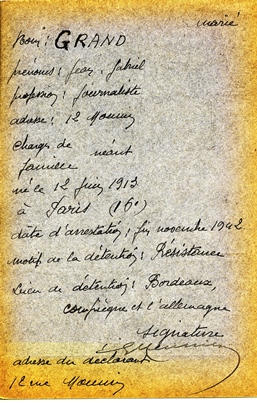 marié
Nom : GRAND
prénoms : Jean, Gabriel
profession : Journaliste
adresse : 12
charges de néant
famille
né le 12 Juin 1913
à Paris (16e)
date d'arrestation : fin novembre 1942
motif de la détention : Résistance
Lieu de détention : Bordeaux,
compiègne et l'allemagne
signature
adresse du déclarant
12 rue